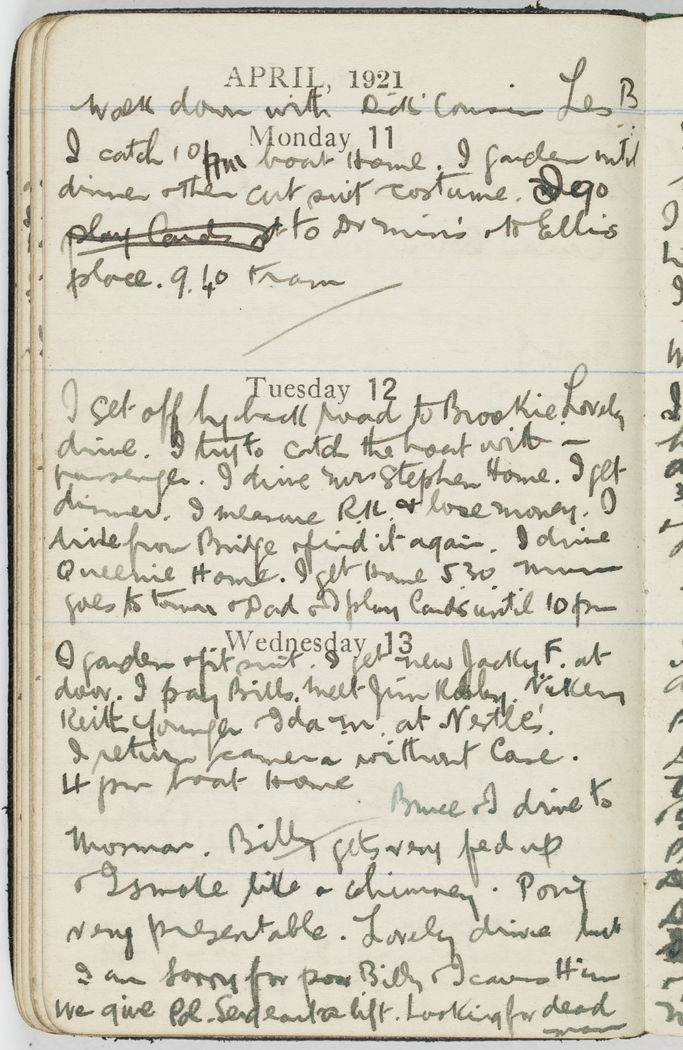 APRIL, 1921
Walk down with Dick's Cousin Les B
Monday 11
I catch 10 pm boat Home. I garden until
dinner & then cut suit costume. I go
play Cards & to Dr Min's & to Ellis
place. 9.40 tram
Tuesday 12
I get off by back road to Brookie. Lovely
drive. I try to catch the boat with –
passenger. I drive Mrs Stephen Home. I get
dinner. I measure R.K. & lose money. I
drive from Bridge & find it again. I drive
Queenie Home. I get Home 5 30 Mum
goes to town & Dad & I play Cards until 10 pm
Wednesday 13
I garden & fit suit. I get new Jacky F. at
door. I pay Bills. Meet Jim
Keith Younger & Ida M. at Nestles'.
I return camera without Case.
4 pm boat Home
Bruce & I drive to
Mosman. Billy gets very fed up
& I smoke like a chimney. Pony
very presentable. Lovely drive but
I am sorry for poor Billy & I Him
We give Pol. Sergeant a lift. Looking for dead
man